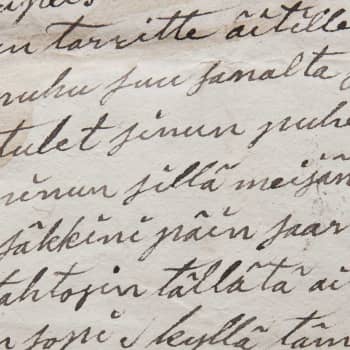 n tarvitte äitille
puhu suu sanalta
tulet sinun puhe
minun sillä meijän
säkkini päin saar
tahtosin tällätä äi
n sopi kyllä täm